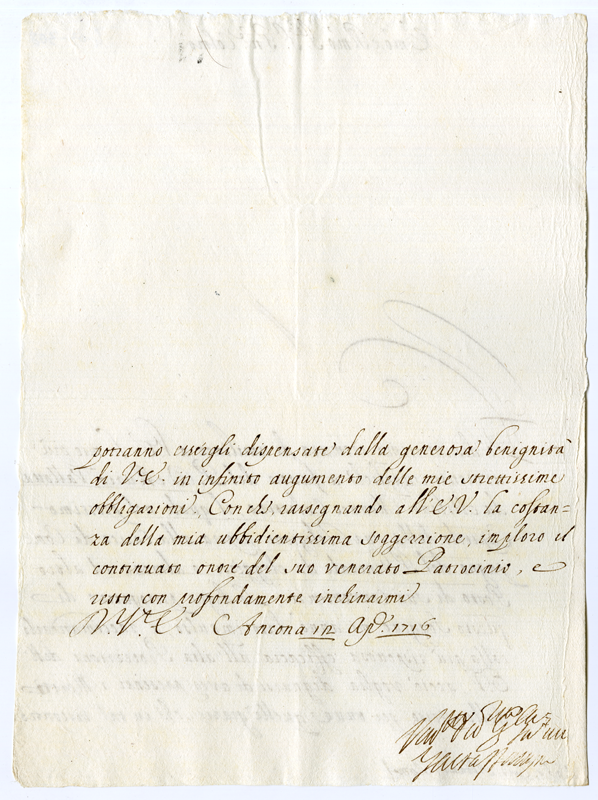 potranno essergli dispensate dalla generosa benignità
di V.E. in infinito augumento delle mie strettissime
obbligazioni. Con che rassegnando all'E.V. la costan=
za della mia ubbidientissima soggezzione, imploro il
continuato onore del suo venerato Patrocinio, e
resto con profondamente inchinarmi
D V.E. Ancona 12 Ap. 1716